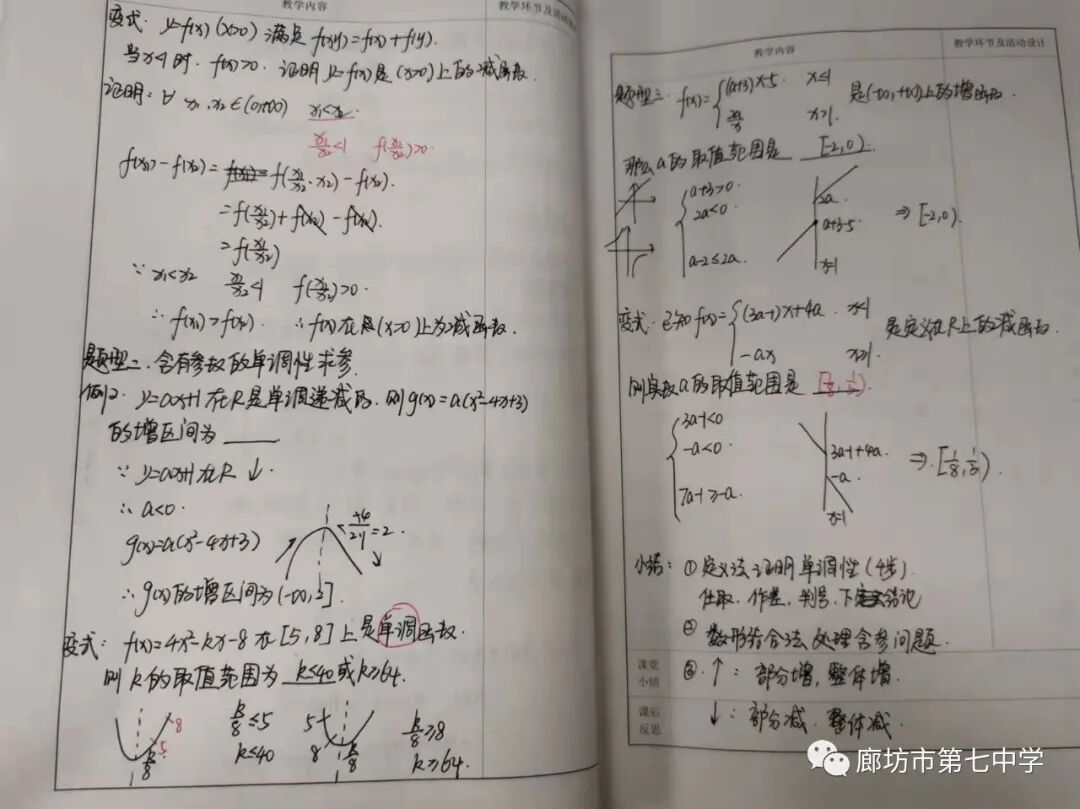 教学内容
教学环节及活动
变式: y=f(x)(x>0)满足f(xy)=f(x)+f(y).
当x<1时. f(x)>0. 证明y=f(x)是(x>0)上的减函数.
证明: ∀ x₁, x₂∈(0,+∞) x₁<x₂.
x₁/x₂<1 f(x₁/x₂)>0.
f(x₁)-f(x₂)= f(x₁/x₂·x₂)-f(x₂).
=f(x₁/x₂)+f(x₂)-f(x₂).
=f(x₁/x₂)
∵ x₁<x₂ x₁/x₂<1 f(x₁/x₂)>0.
∴ f(x₁)>f(x₂). ∴f(x)在(x>0)上为减函数.
题型二、含有参数的单调性求参.
例2. y=ax+1在R是单调递减的. 则g(x)=a(x²-4x+3)
的增区间为____
∵ y=ax+1在R↓.
∴ a<0.
g(x)=a(x²-4x+3)
+4/2·1=2.
∴g(x)的增区间为(-∞,2].
变式: f(x)=4x²-kx-8在[5,8]上是单调函数.
则k的取值范围为 k≤40或k≥64.
8
5
k/8
k/8≤5
k≤40
5
8
k/8
k/8≥8
k≥64.
教学内容
教学环节及活动设计
题型三. f(x)={(a+3)x-5 x≤1
2a/x x>1.
是(-∞,+∞)上的增函数.
那么a的取值范围是 [-2,0).
a+3>0.
2a<0
a-2≤2a.
2a.
a+3-5
x=1
⇒[-2,0).
变式: 已知f(x)={(3a-1)x+4a. x<1
-ax x≥1.
是定义在R上的减函数.
则实数a的取值范围是 [1/8,1/3).
3a-1<0
-a<0.
7a-1≥-a.
3a-1+4a.
-a.
x=1
⇒[1/8,1/3).
小结: ①定义法证明单调性(4步).
任取. 作差, 判号, 下结论
②数形结合法处理含参问题.
课堂
小结
③. ↑: 部分增, 整体增.
课后
反思
↓: 部分减. 整体减.
廊坊市第七中学